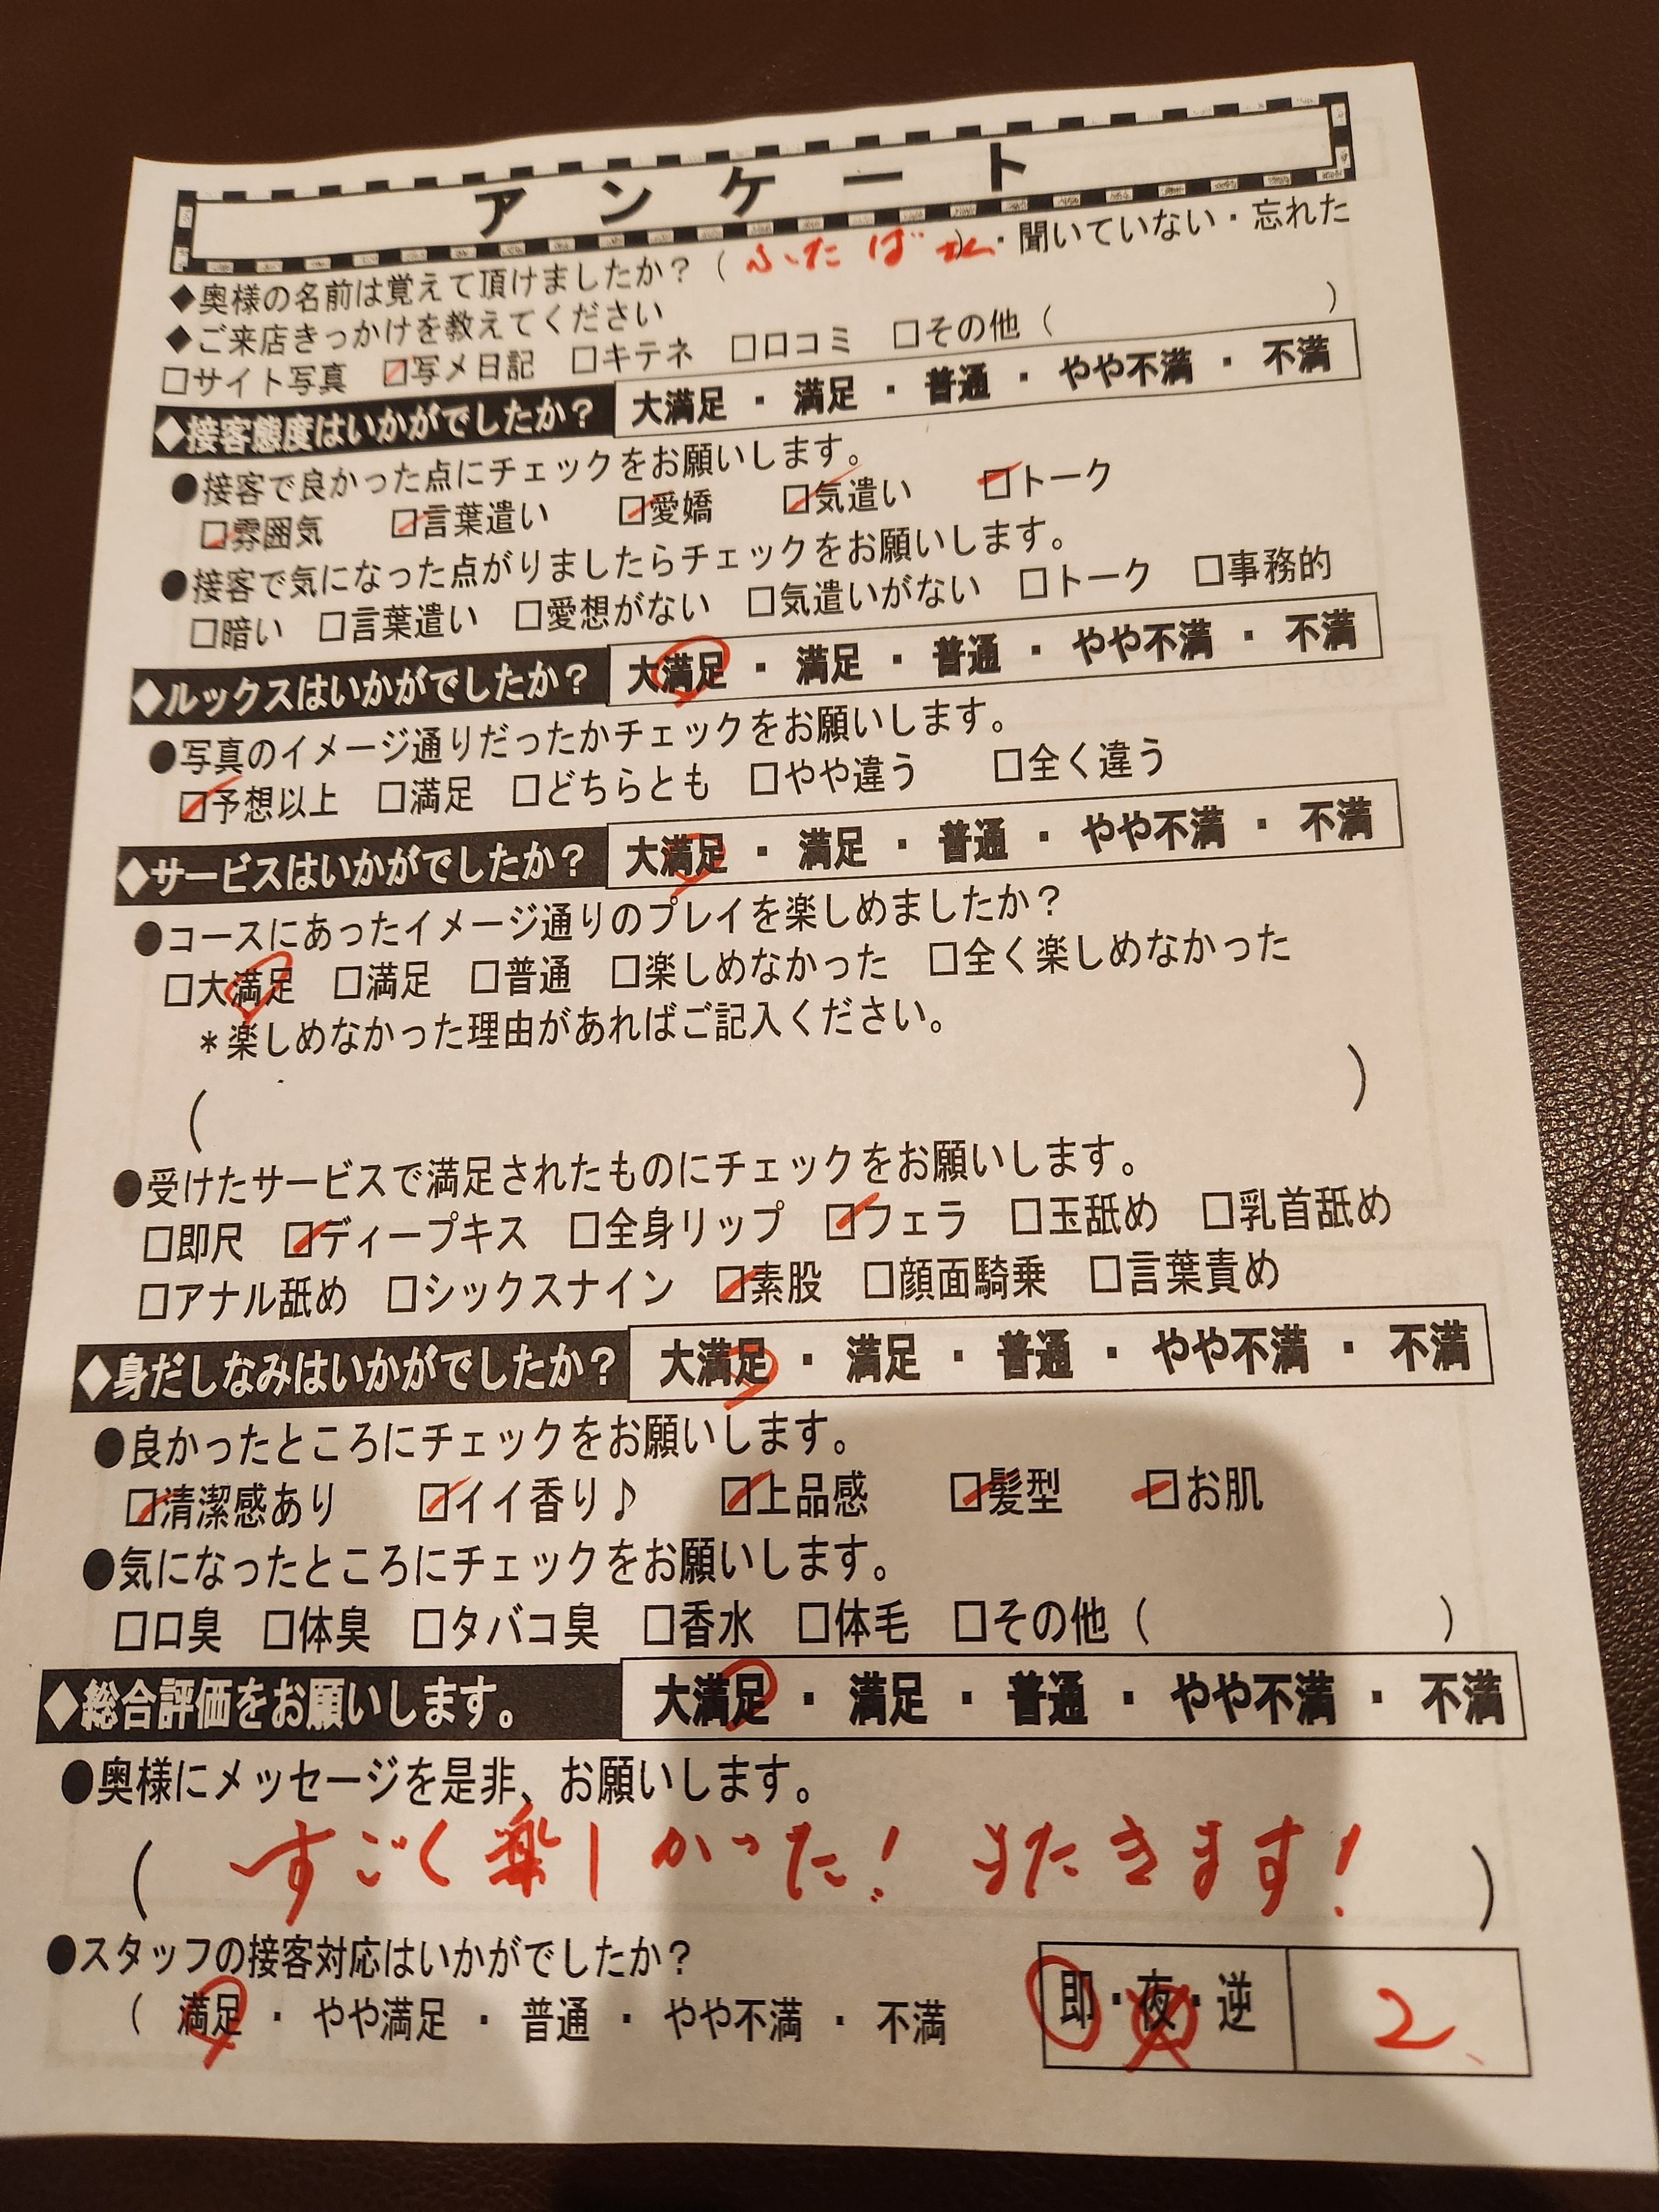 アンケート
◆奥様の名前は覚えて頂けましたか？（ふたば）・聞いていない・忘れた
◆ご来店きっかけを教えてください
□サイト写真 ☑写メ日記 □キテネ □口コミ □その他（ ）
◆接客態度はいかがでしたか？ 大満足 ・ 満足 ・ 普通 ・ やや不満 ・ 不満
●接客で良かった点にチェックをお願いします。
☑雰囲気 ☑言葉遣い ☑愛嬌 ☑気遣い ☑トーク
●接客で気になった点がりましたらチェックをお願いします。
□暗い □言葉遣い □愛想がない □気遣いがない □トーク □事務的
◆ルックスはいかがでしたか？ 大満足 ・ 満足 ・ 普通 ・ やや不満 ・ 不満
●写真のイメージ通りだったかチェックをお願いします。
☑予想以上 □満足 □どちらとも □やや違う □全く違う
◆サービスはいかがでしたか？ 大満足 ・ 満足 ・ 普通 ・ やや不満 ・ 不満
●コースにあったイメージ通りのプレイを楽しめましたか？
□大満足 □満足 □普通 □楽しめなかった □全く楽しめなかった
＊楽しめなかった理由があればご記入ください。
（ ）
●受けたサービスで満足されたものにチェックをお願いします。
□即尺 ☑ディープキス □全身リップ ☑フェラ □玉舐め □乳首舐め
□アナル舐め □シックスナイン ☑素股 □顔面騎乗 □言葉責め
◆身だしなみはいかがでしたか？ 大満足 ・ 満足 ・ 普通 ・ やや不満 ・ 不満
●良かったところにチェックをお願いします。
☑清潔感あり ☑イイ香り♪ ☑上品感 ☑髪型 ☑お肌
●気になったところにチェックをお願いします。
□口臭 □体臭 □タバコ臭 □香水 □体毛 □その他（ ）
◆総合評価をお願いします。 大満足 ・ 満足 ・ 普通 ・ やや不満 ・ 不満
●奥様にメッセージを是非、お願いします。
（すごく楽しかった！ またきます！）
●スタッフの接客対応はいかがでしたか？
（ 満足 ・ やや満足 ・ 普通 ・ やや不満 ・ 不満
即・夜・逆 2